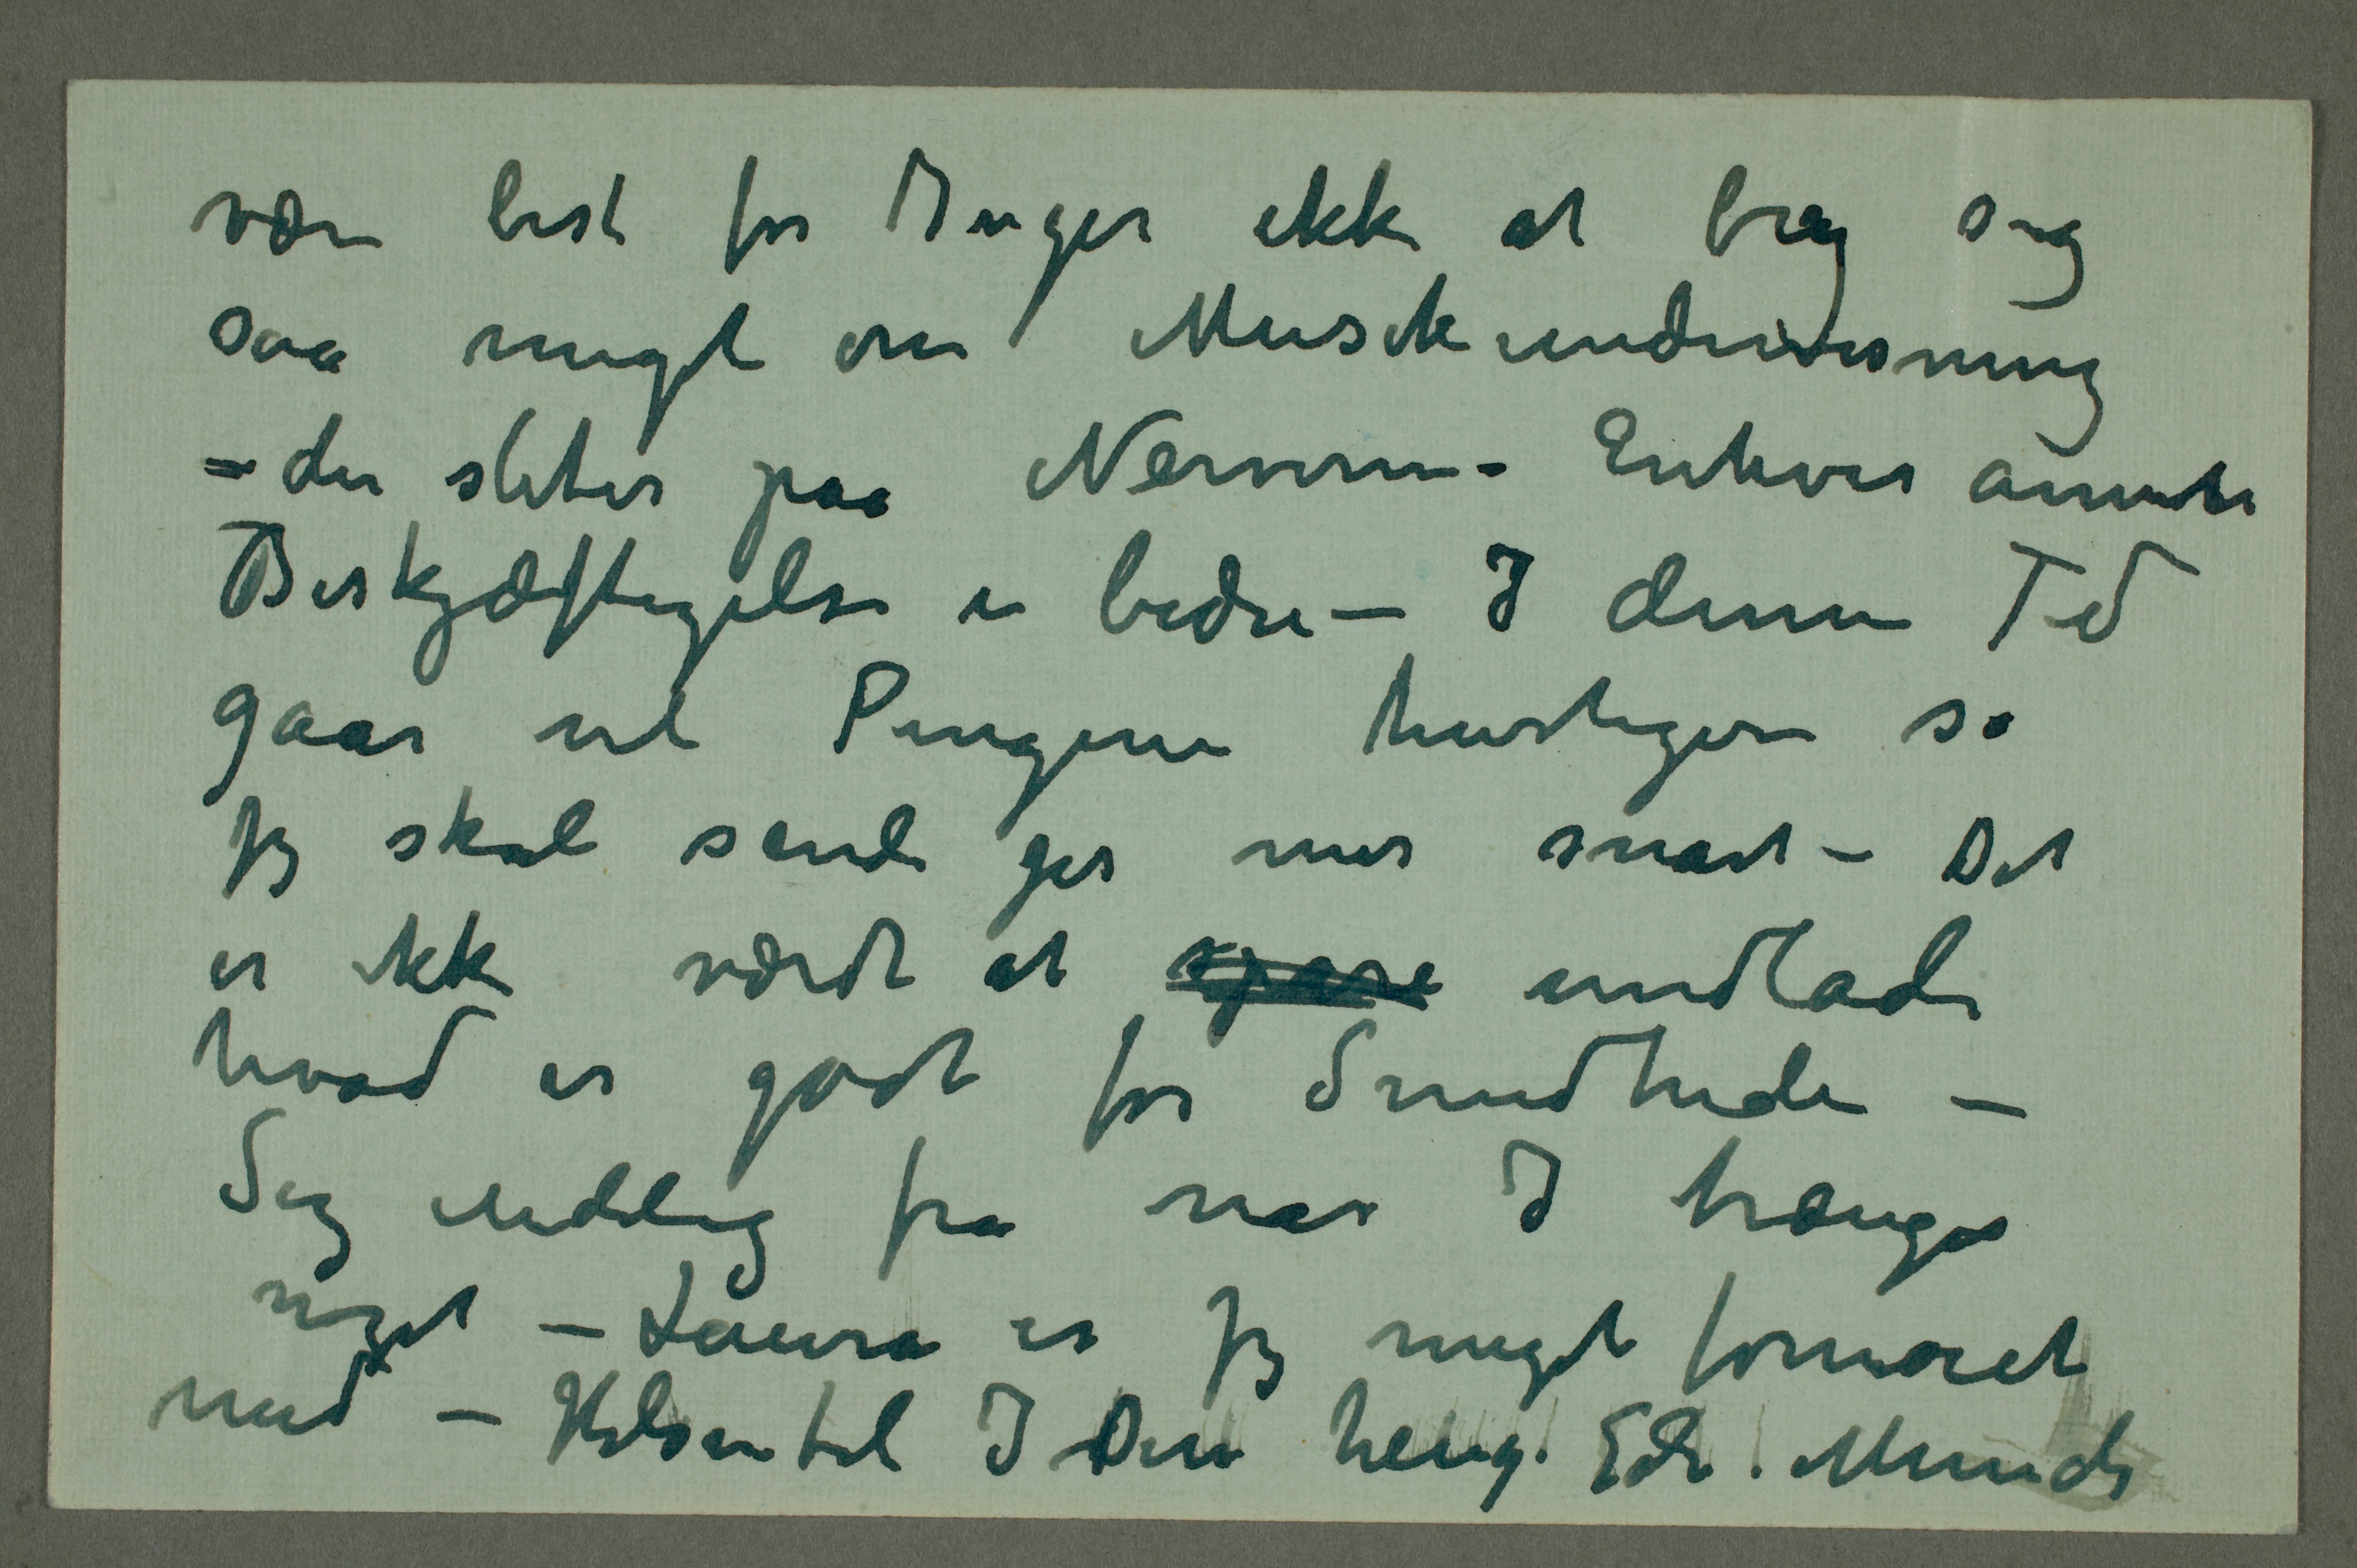 være best for Inger ikke at bry sig
saa meget om Musikundervisning
– der sliter paa Nerverne – Enhver annen
Beskjæftigelse er bedre – I denne Tid
gaar vel Pengene hurtigere så
jeg skal sende jer mer snart – Det
er ikke værdt at spare undlade
hvad er godt for Sundheden –
Sig endelig fra naar I trænger
noget – Laura er jeg meget fornøiet
med – Hilsen til I Din heng. Edv. Munch